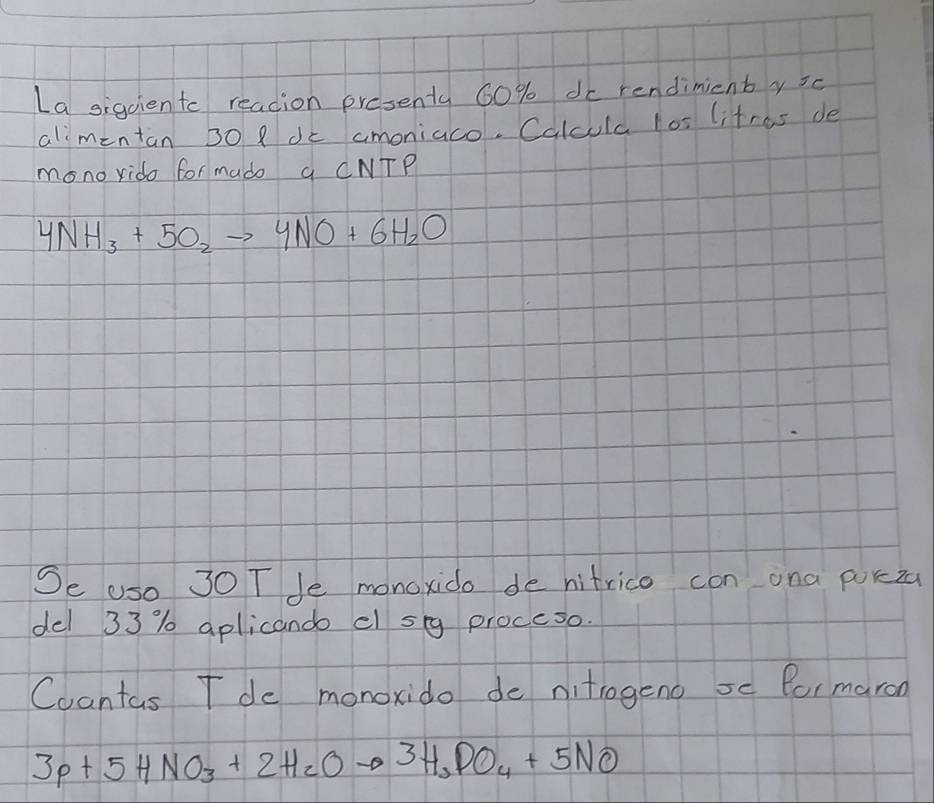 La siguiente reacion presenta 60% de rendimiento y se
alimentan 30 l de amoniaco. Calcula los litros de
monoxido formado a CNTP
4NH₃ + 5O₂ → 4NO + 6H₂O
Se uso 30T de monoxido de nitrico con una pureza
del 33% aplicando el sig proceso.
Cuantas T de monoxido de nitrogeno se formaron
3p + 5HNO₃ + 2H₂O → 3H₃PO₄ + 5NO